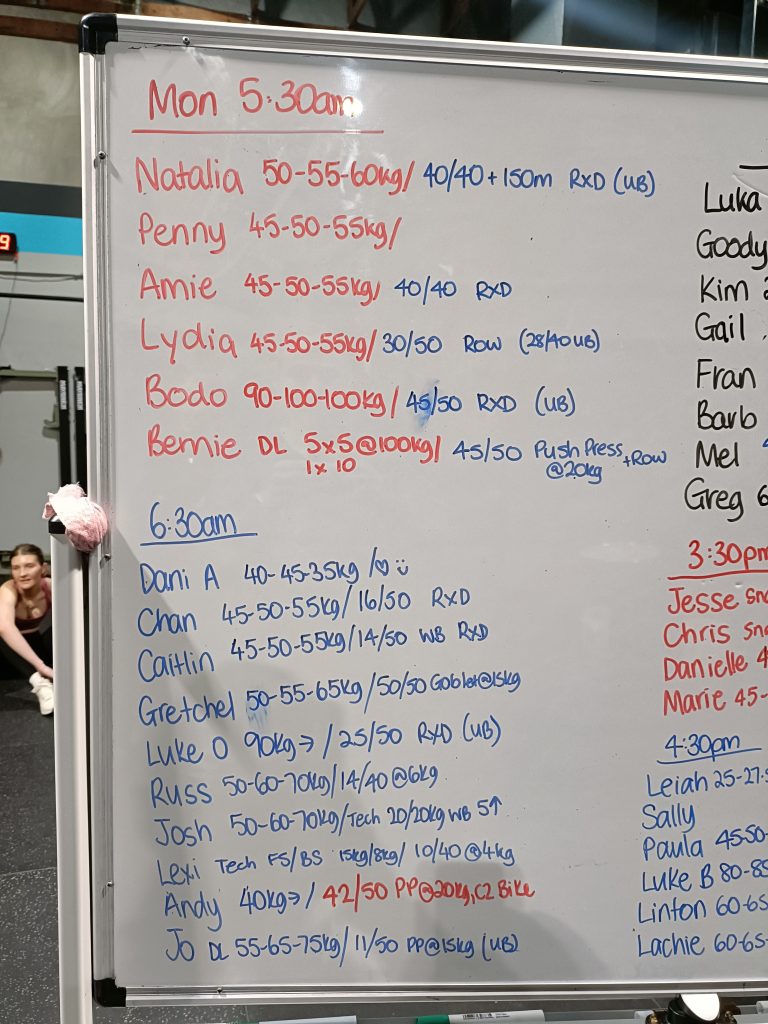 Mon 5:30am
Natalia 50-55-60kg/ 40/40+150m RXD (UB)
Penny 45-50-55kg/
Amie 45-50-55kg/ 40/40 RXD
Lydia 45-50-55kg/ 30/50 Row (28/40 UB)
Bodo 90-100-100kg/ 45/50 RXD (UB)
Bernie DL 5x5@100kg/ 45/50 Push Press +Row
1x10 @20kg
6:30am
Dani A 40-45-35kg /♡ ü
Chan 45-50-55kg/ 16/50 RXD
Caitlin 45-50-55kg/14/50 WB RXD
Gretchel 50-55-65kg /50/50 Goblet@15kg
Luke O 90kg→ / 25/50 RXD (UB)
Russ 50-60-70kg/14/40 @6kg
Josh 50-60-70kg/Tech 20/20kg WB 5↑
Lexi Tech FS/BS 15kg/8kg/ 10/40 @4kg
Andy 40kg→ / 42/50 PP@20kg, C2 Bike
Jo DL 55-65-75kg/ 11/50 PP@15kg (UB)
Luka
Goody
Kim
Gail
Fran
Barb
Mel
Greg 6
3:30pm
Jesse
Chris
Danielle 4
Marie 45-
4:30pm
Leiah 25-27.5
Sally
Paula 45-50-
Luke B 80-85
Linton 60-65
Lachie 60-65-
9